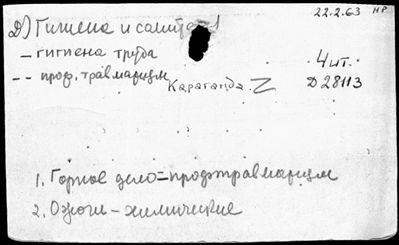 22.2.63 НР
Д) Гигиена и санит
– гигиена труда
4 шт.
-- проф. травматизм
Караганда. Z
D 28113
1. Горное дело = профтравматизм
2. Ожоги – химические